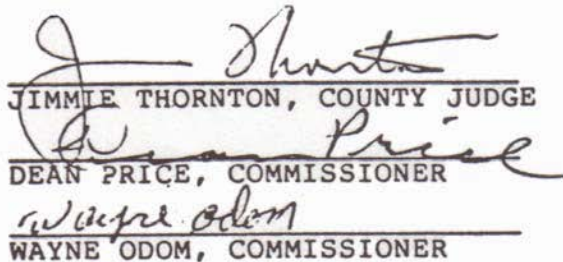 J Thornton
JIMMIE THORNTON, COUNTY JUDGE
Price
DEAN PRICE, COMMISSIONER
Wayne Odom
WAYNE ODOM, COMMISSIONER